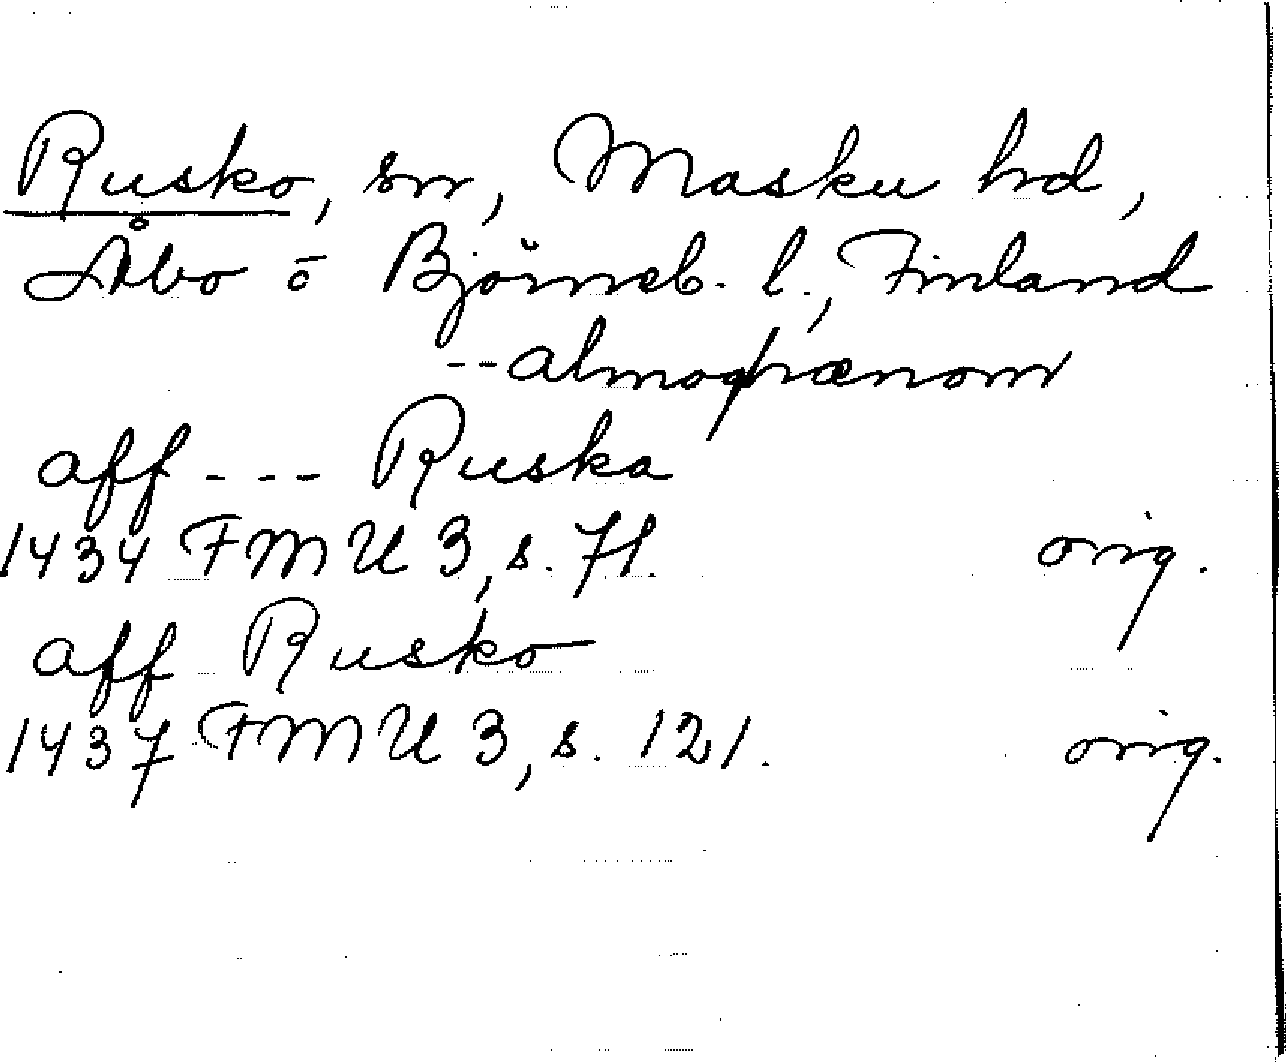 Rusko, sn, Masku hd,
Åbo o Björneb. l., Finland
--almoghænom
aff --- Ruska
1434 FMU 3, s. 71. orig.
aff Rusko
1437 FMU 3, s. 121. orig.